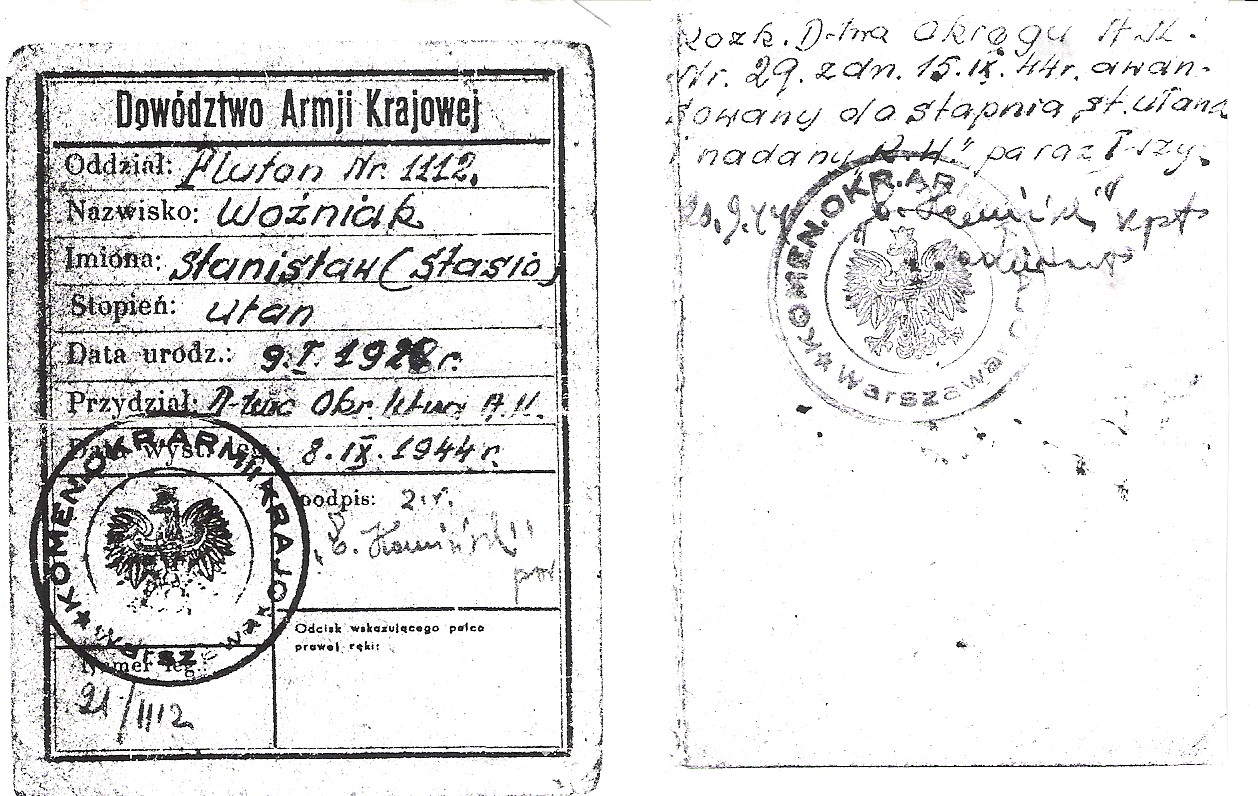 Dowództwo Armji Krajowej
Oddział: Pluton Nr. 1112.
Nazwisko: Woźniak
Imiona: Stanisław (Stasio)
Stopień: ułan
Data urodz.: 9.I.192 r.
Przydział: Okr. A.K.
Data wyst. leg.: 8.IX.1944 r.
podpis: z.r.
"Kamiński"
por
Odcisk wskazującego palca
prawej ręki:
Numer leg.:
21/1112
KOMEN.OKR.ARMII KRAJOW
Rozk. D-twa Okręgu A.K.
Nr. 29. z dn. 15.IX.44r. awan-
sowany do stopnia „st. ułana
i nadany K.W." po raz I-szy.
20.9.44 "Kamiński" kpt
KOMEN.OKR.AR
Warszawa